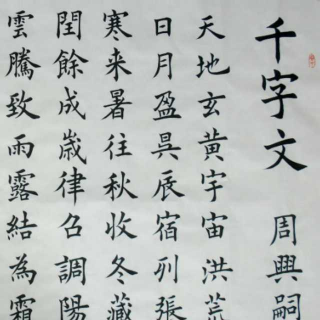 千字文
周興嗣
天地玄黃宇宙洪荒
日月盈昃辰宿列張
寒来暑往秋收冬藏
閏餘成嵗律召調陽
雲騰致雨露結為霜